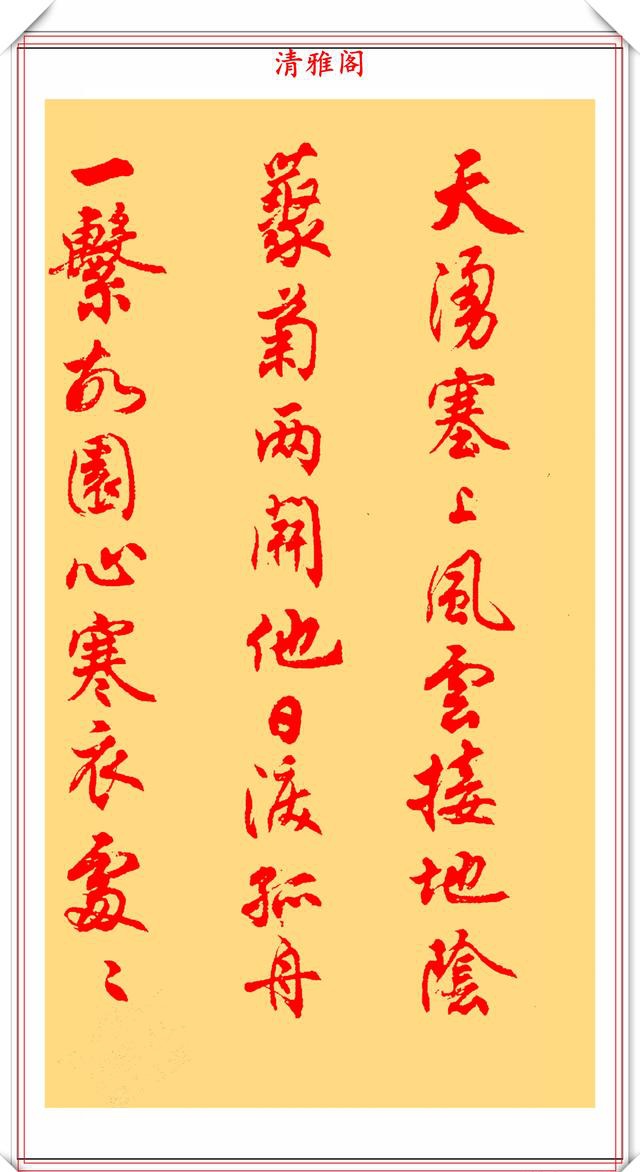 清雅阁
天湧塞上風雲接地陰
藂菊两開他日淚孤舟
一繫故園心寒衣處〻